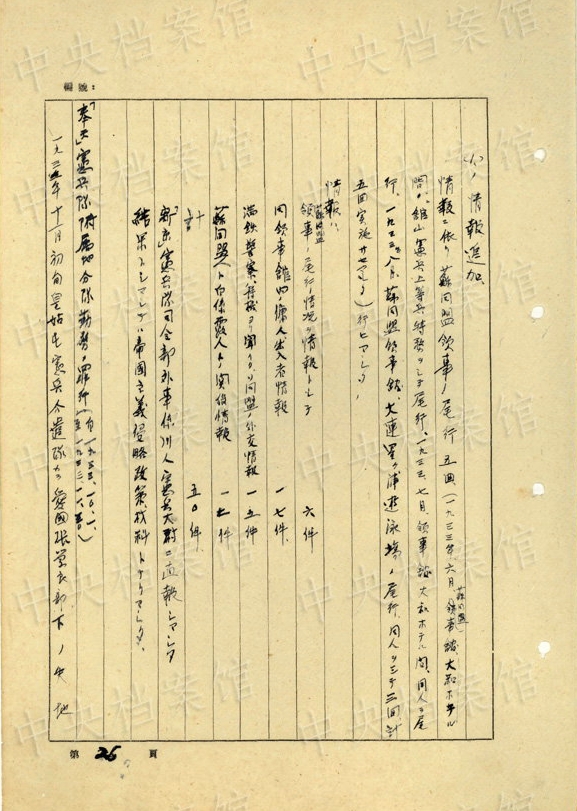 編號：
(4)、情報進加
情報ニ依リ蘇同盟領事ノ尾行 五回（一九三三年六月蘇同盟領事館、大和ホテル
間、館山憲兵上等兵特務ヲシテ尾行、一九三三、七月領事館大和ホテル間、同人ヲ尾
行、一九三三、八月、蘇同盟領事館、大連星ヶ浦遊泳場ノ尾行、同人ヲシテ三回計
五回実施サセマシタ）行ヒマシタ、
情報ハ
蘇同盟領事ノ尾行情況ヲ情報トシテ 六件
同領事館四ノ 人出入者情報 一七件
満鉄警察 ヨリ聞イタ同盟ノ外交情報 一五件
蘇同盟人ト白係露人トノ関係情報 一 件
計 五〇件
「新京」憲兵隊司令部外事係 人憲兵大尉ニ直報シマシタ
結果トシマシテハ帝国主義侵略政策ノ材料トナリマシタ、
「奉天」憲兵隊附属地分隊勤務ノ罪行（自一九三三、一〇、一、至一九三 ）
一九三 年十一月初旬皇姑屯憲兵分遣隊カ愛国張学良部下ノ
第 26 頁
中央档案馆